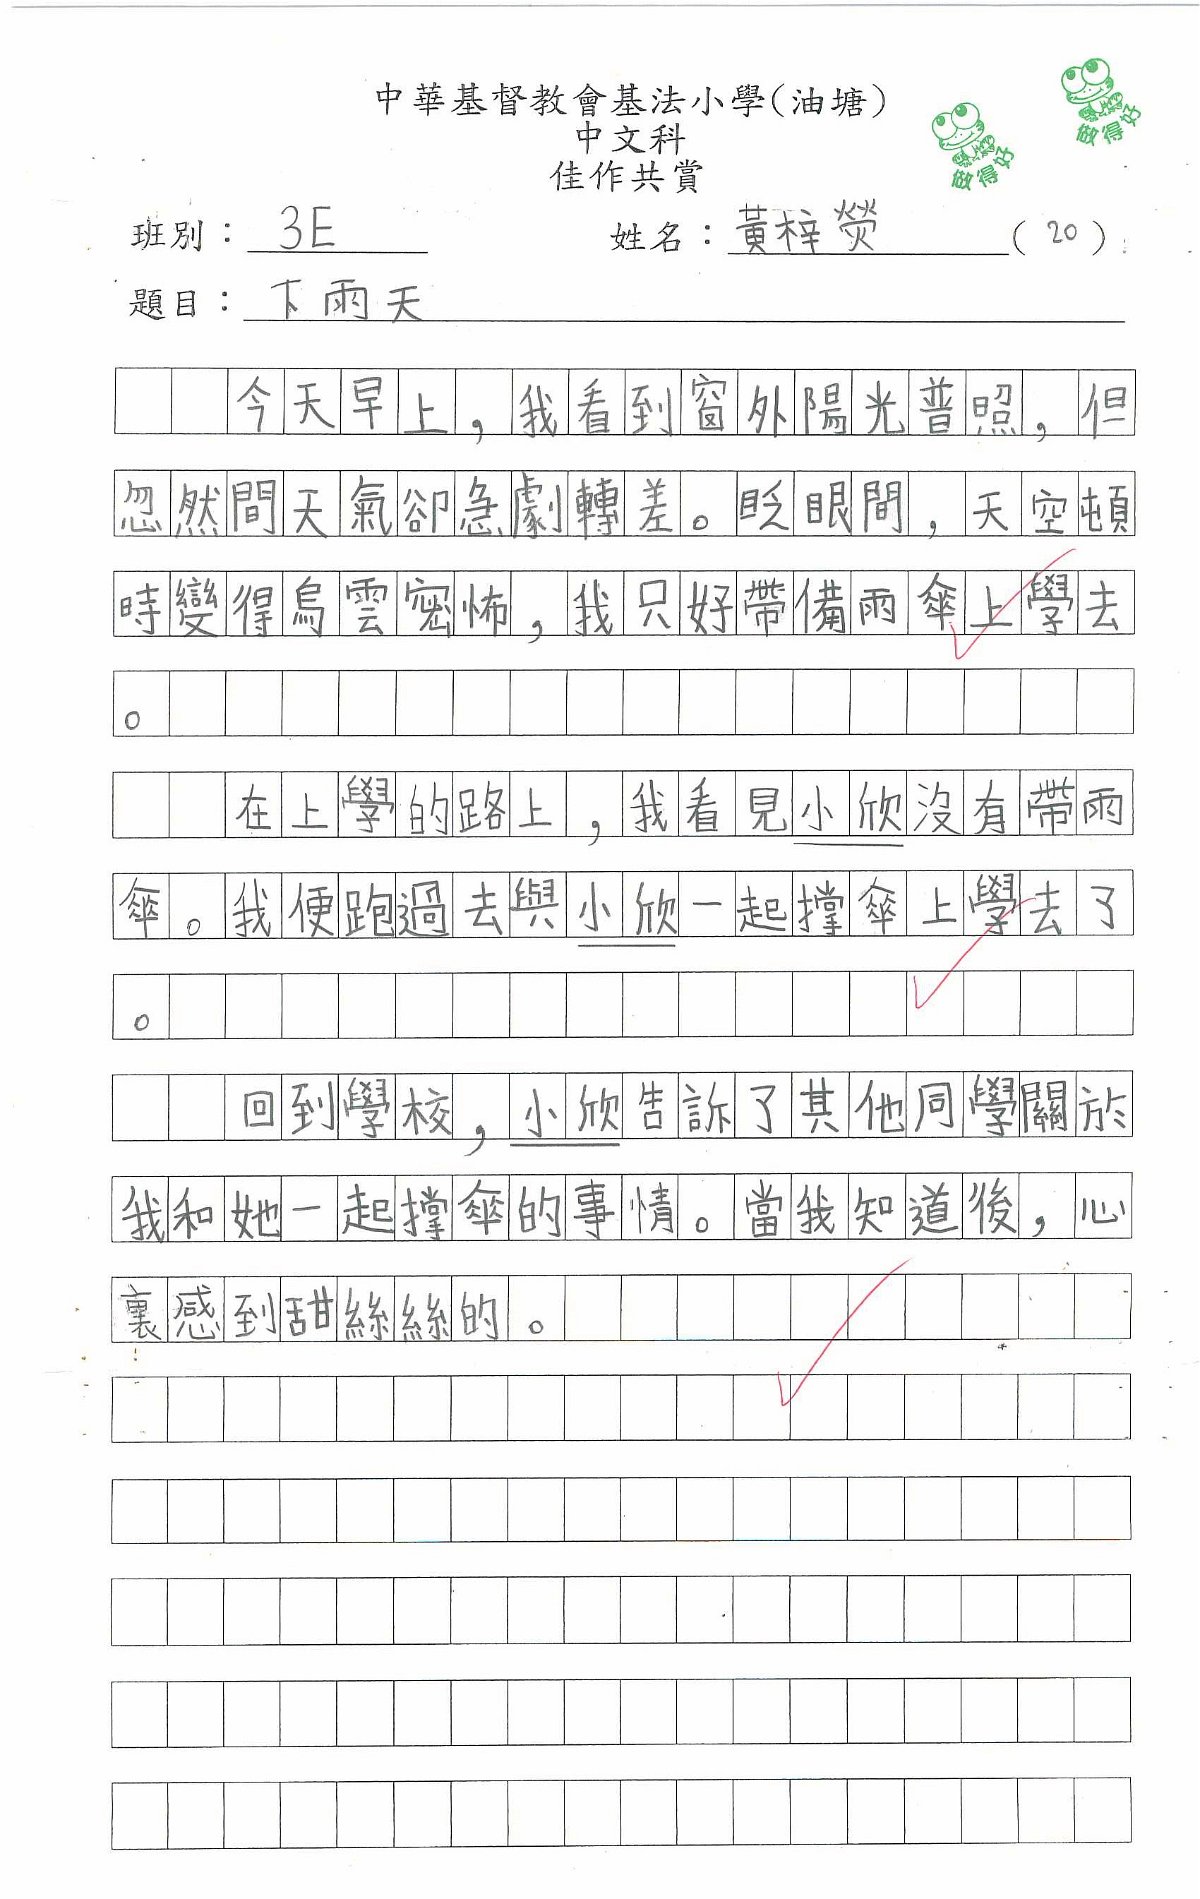 中華基督教會基法小學(油塘)
中文科
佳作共賞
做得好
做得好
班別：3E 姓名：黃梓熒(20)
題目：下雨天
今天早上，我看到窗外陽光普照，但
忽然間天氣卻急劇轉差。眨眼間，天空頓
時變得烏雲密怖，我只好帶備雨傘上學去
。
在上學的路上，我看見小欣沒有帶雨
傘。我便跑過去與小欣一起撑傘上學去了
。
回到學校，小欣告訴了其他同學關於
我和她一起撑傘的事情。當我知道後，心
裏感到甜絲絲的。